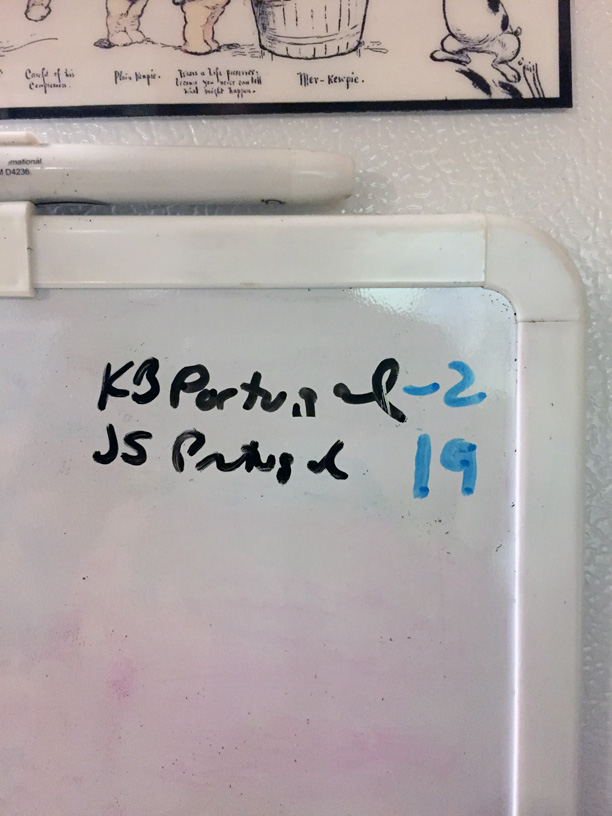 Careful of his
Companion.
Plain Kewpie.
Wears a Life preserver:
because you never can tell
what might happen.
Ther-Kewpie.
rnational
M D4236.
KB Portugal -2
JS Portugal 19